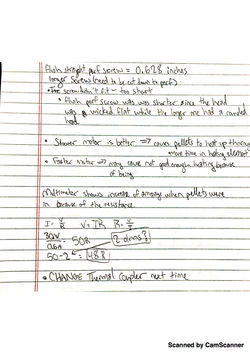 flush straight part screw = 0.628 inches
longer screw (need to be cut down to part)
• The screw didn't fit - too short
• flush part screw was shorter since the head
was a wicked flat while the longer one had a rounded
head.
• Slower motor is better ⇒ causes pellets to heat up through
more time in heating element
• Faster motor ⇒ may cause not good enough heating because
of being
Multimeter shows increase of amperage when pellets were
in because of the resistance.
I = V/R V = IR R = V/I
30V/0.6A = 50Ω 2 ohms?
50-2 = 48Ω
• CHANGE Thermal Coupler next time
Scanned by CamScanner